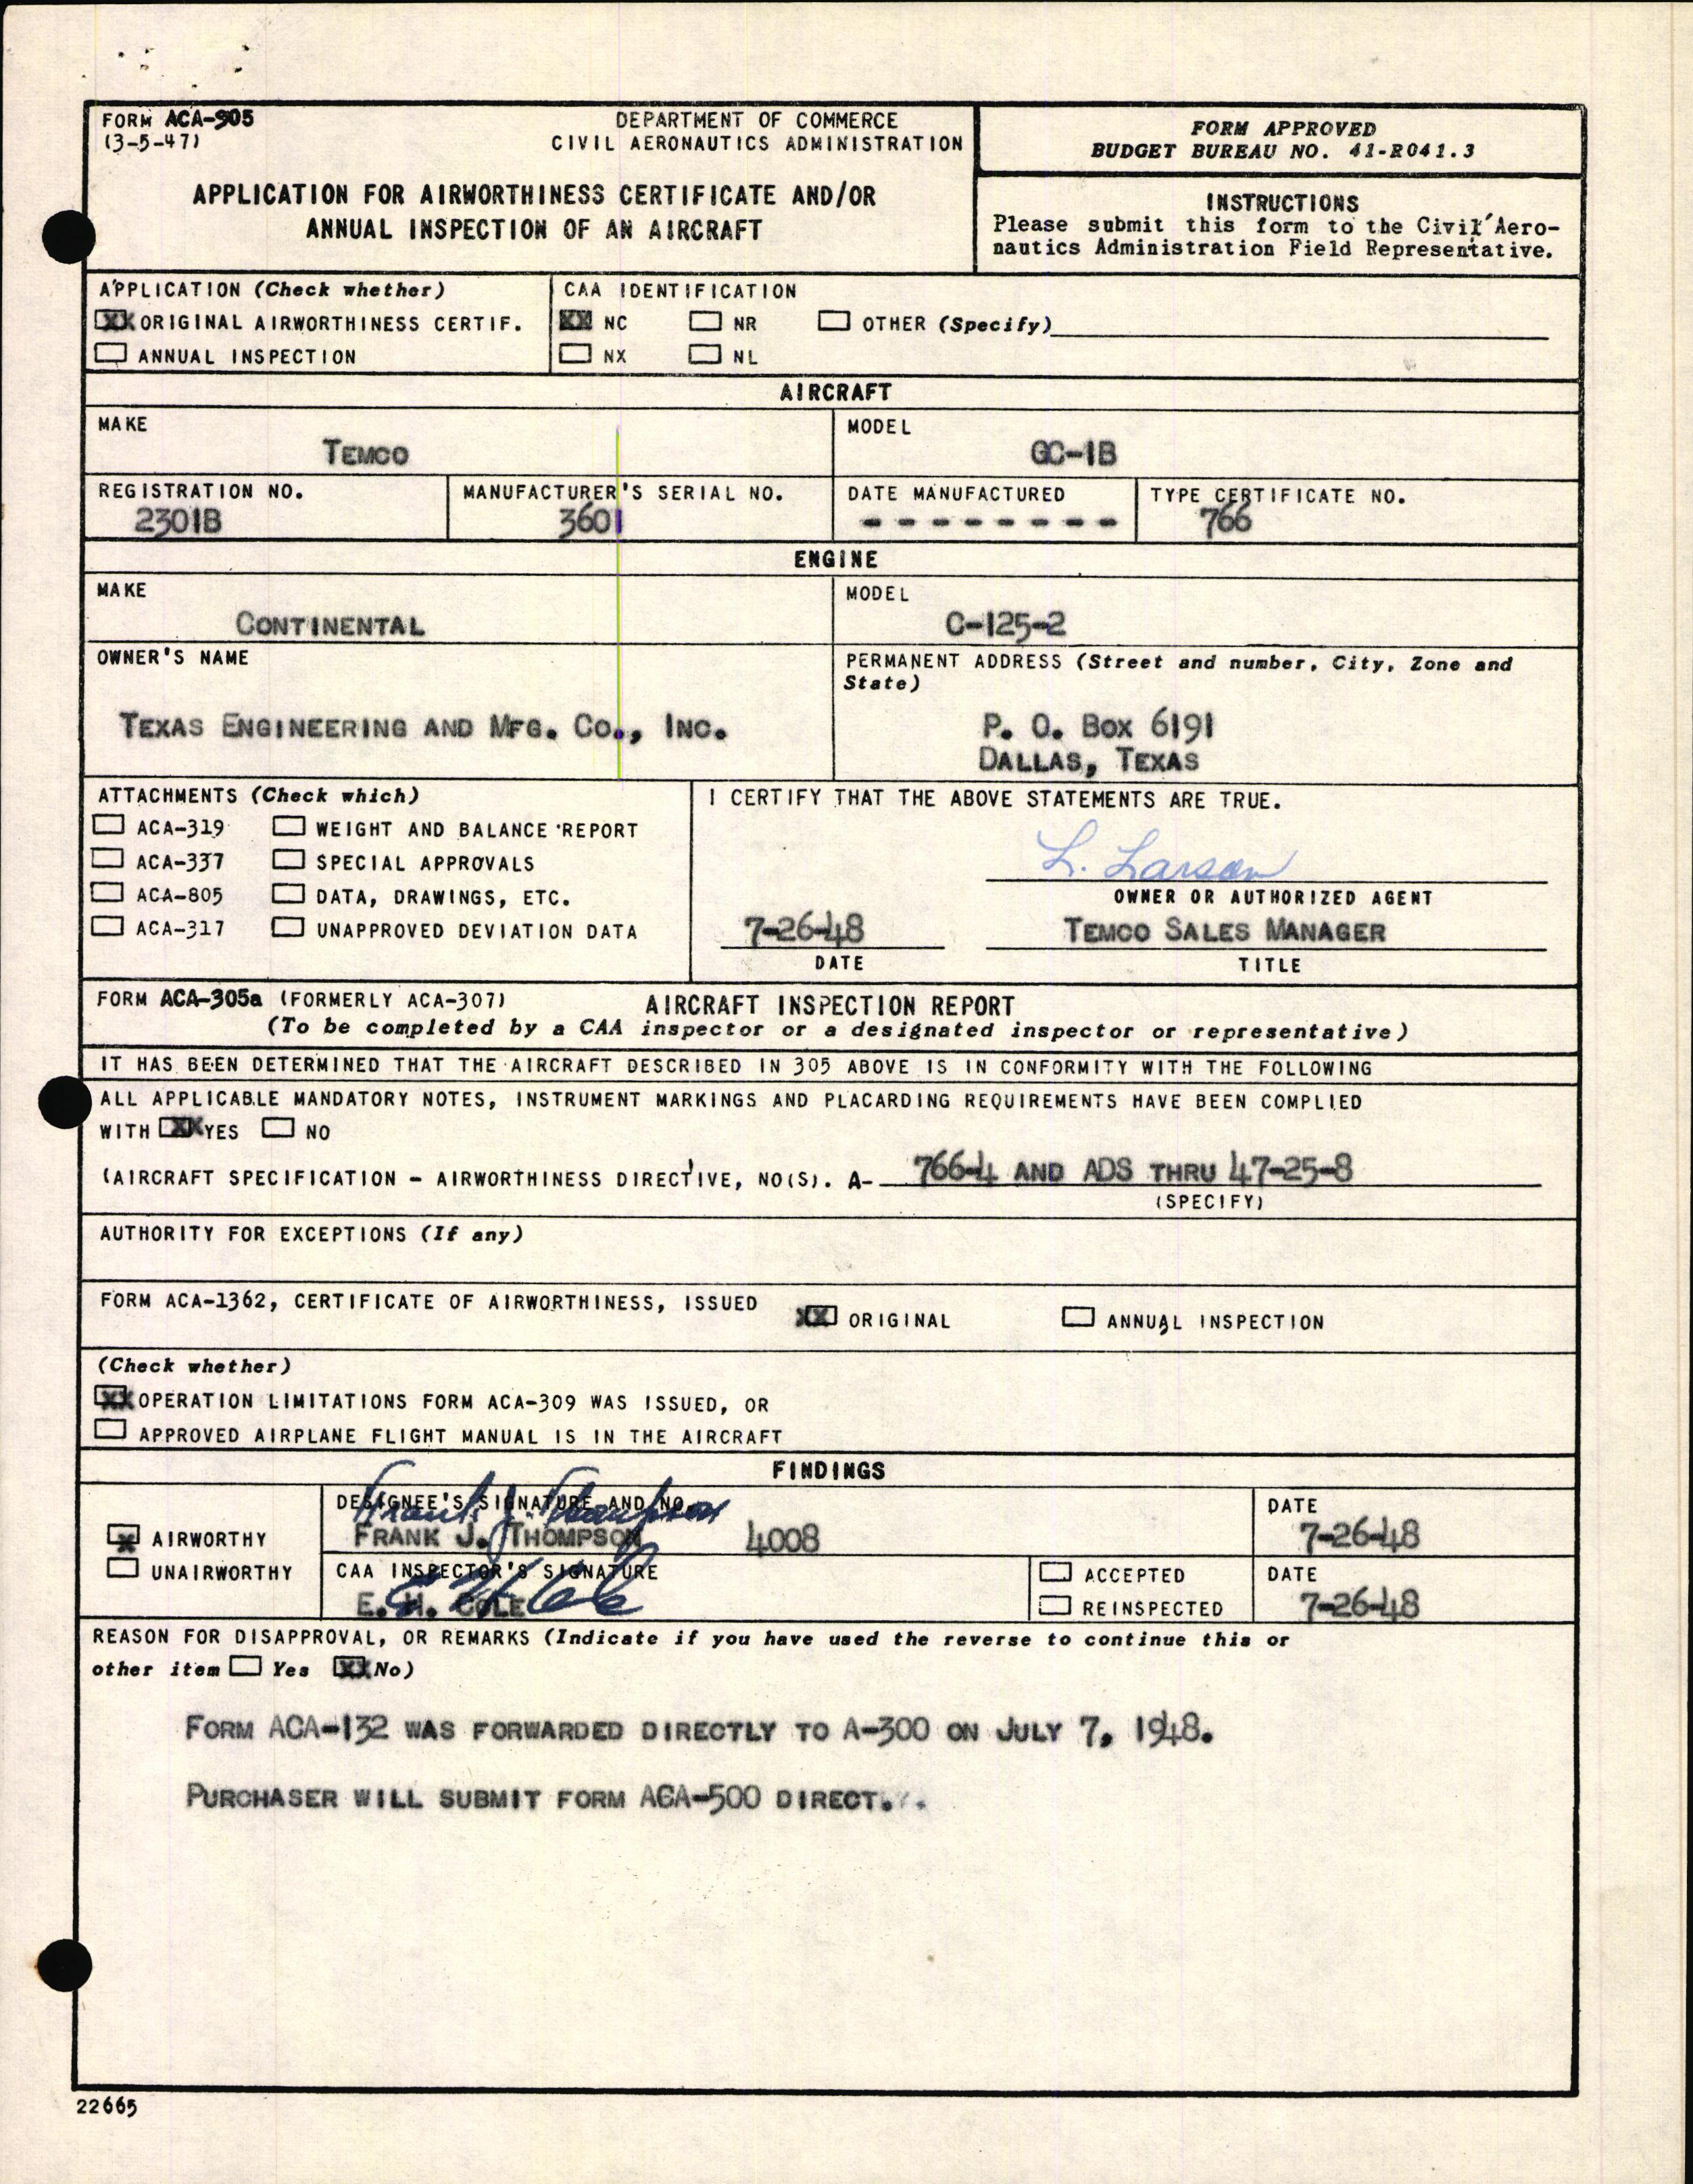 FORM ACA-905
(3-5-47)
DEPARTMENT OF COMMERCE
CIVIL AERONAUTICS ADMINISTRATION
APPLICATION FOR AIRWORTHINESS CERTIFICATE AND/OR
ANNUAL INSPECTION OF AN AIRCRAFT
FORM APPROVED
BUDGET BUREAU NO. 41-R041.3
INSTRUCTIONS
Please submit this form to the Civil Aero-
nautics Administration Field Representative.
APPLICATION (Check whether)
XX ORIGINAL AIRWORTHINESS CERTIF.
ANNUAL INSPECTION
CAA IDENTIFICATION
XX NC NR OTHER (Specify)
NX NL
AIRCRAFT
MAKE
TEMCO
MODEL
GC-1B
REGISTRATION NO.
2301B
MANUFACTURER'S SERIAL NO.
3601
DATE MANUFACTURED
- - - - - - - -
TYPE CERTIFICATE NO.
766
ENGINE
MAKE
CONTINENTAL
MODEL
C-125-2
OWNER'S NAME
TEXAS ENGINEERING AND MFG. CO., INC.
PERMANENT ADDRESS (Street and number, City, Zone and
State)
P. O. BOX 6191
DALLAS, TEXAS
ATTACHMENTS (Check which)
ACA-319 WEIGHT AND BALANCE REPORT
ACA-337 SPECIAL APPROVALS
ACA-805 DATA, DRAWINGS, ETC.
ACA-317 UNAPPROVED DEVIATION DATA
I CERTIFY THAT THE ABOVE STATEMENTS ARE TRUE.
L. Larson
OWNER OR AUTHORIZED AGENT
7-26-48 TEMCO SALES MANAGER
DATE TITLE
FORM ACA-305a (FORMERLY ACA-307) AIRCRAFT INSPECTION REPORT
(To be completed by a CAA inspector or a designated inspector or representative)
IT HAS BEEN DETERMINED THAT THE AIRCRAFT DESCRIBED IN 305 ABOVE IS IN CONFORMITY WITH THE FOLLOWING
ALL APPLICABLE MANDATORY NOTES, INSTRUMENT MARKINGS AND PLACARDING REQUIREMENTS HAVE BEEN COMPLIED
WITH XX YES NO
(AIRCRAFT SPECIFICATION - AIRWORTHINESS DIRECTIVE, NO(S). A- 766-4 AND ADS THRU 47-25-8
(SPECIFY)
AUTHORITY FOR EXCEPTIONS (If any)
FORM ACA-1362, CERTIFICATE OF AIRWORTHINESS, ISSUED XX ORIGINAL ANNUAL INSPECTION
(Check whether)
XX OPERATION LIMITATIONS FORM ACA-309 WAS ISSUED, OR
APPROVED AIRPLANE FLIGHT MANUAL IS IN THE AIRCRAFT
FINDINGS
X AIRWORTHY
UNAIRWORTHY
DESIGNEE'S SIGNATURE AND NO.
Frank J. Thompson
FRANK J. THOMPSON 4008
DATE
7-26-48
CAA INSPECTOR'S SIGNATURE
E H Cole
E. H. COLE
ACCEPTED
REINSPECTED
DATE
7-26-48
REASON FOR DISAPPROVAL, OR REMARKS (Indicate if you have used the reverse to continue this or
other item Yes XX No)
FORM ACA-132 WAS FORWARDED DIRECTLY TO A-300 ON JULY 7, 1948.
PURCHASER WILL SUBMIT FORM ACA-500 DIRECT.
22665